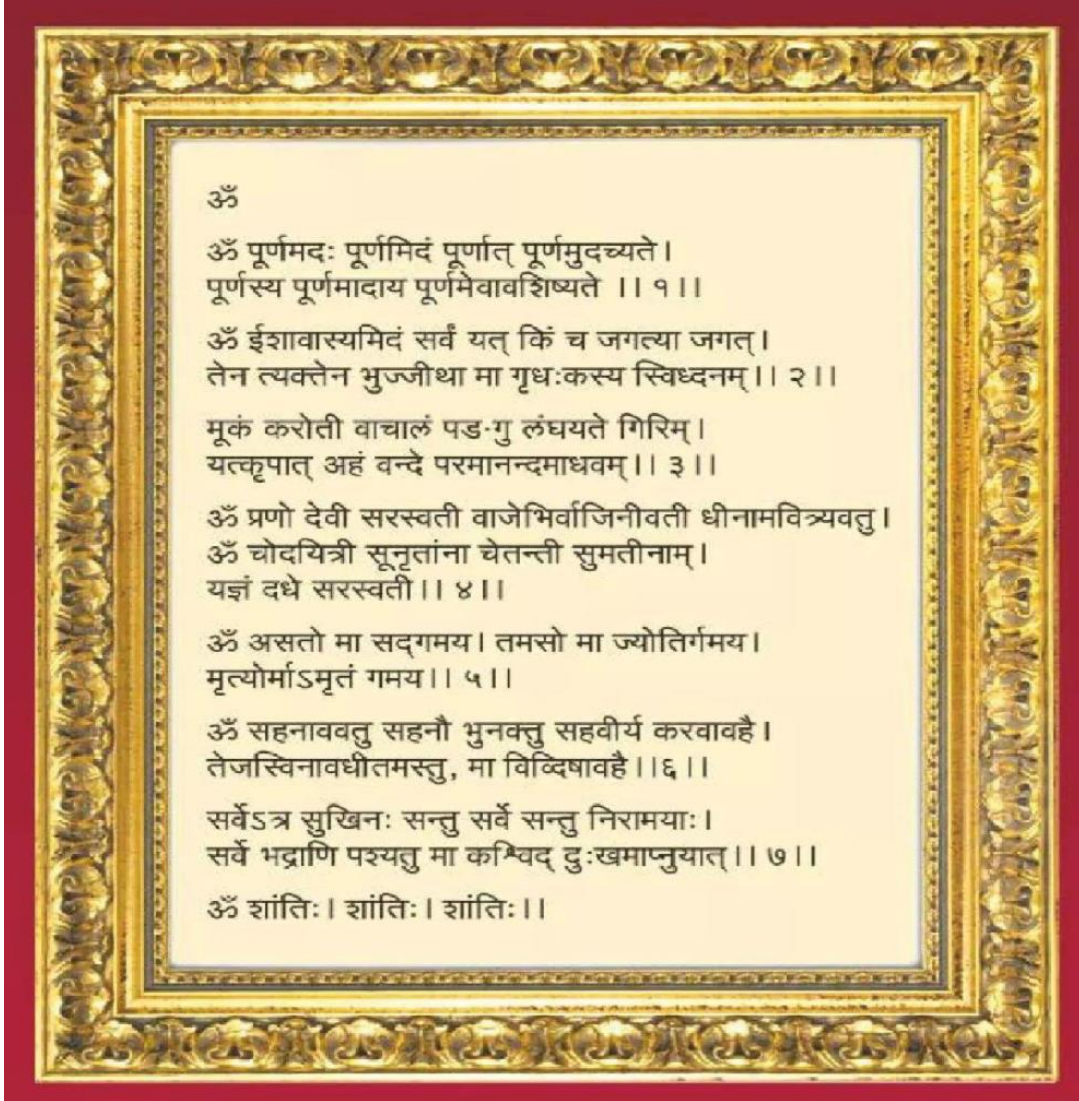 ॐ
ॐ पूर्णमदः पूर्णमिदं पूर्णात् पूर्णमुदच्यते।
पूर्णस्य पूर्णमादाय पूर्णमेवावशिष्यते ।। १।।
ॐ ईशावास्यमिदं सर्वं यत् किं च जगत्या जगत्।
तेन त्यक्तेन भुज्जीथा मा गृधःकस्य स्विध्दनम्।। २।।
मूकं करोती वाचालं पड·गु लंघयते गिरिम्।
यत्कृपात् अहं वन्दे परमानन्दमाधवम्।। ३।।
ॐ प्रणो देवी सरस्वती वाजेभिर्वाजिनीवती धीनामवित्र्यवतु।
ॐ चोदयित्री सूनृतांना चेतन्ती सुमतीनाम्।
यज्ञं दधे सरस्वती।। ४।।
ॐ असतो मा सद्‌गमय। तमसो मा ज्योतिर्गमय।
मृत्योर्माऽमृतं गमय।। ५।।
ॐ सहनाववतु सहनौ भुनक्तु सहवीर्य करवावहै।
तेजस्विनावधीतमस्तु, मा विव्दिषावहै।।६।।
सर्वेऽत्र सुखिनः सन्तु सर्वे सन्तु निरामयाः।
सर्वे भद्राणि पश्यतु मा कश्विद् दुःखमाप्नुयात्।। ७।।
ॐ शांतिः। शांतिः। शांतिः।।